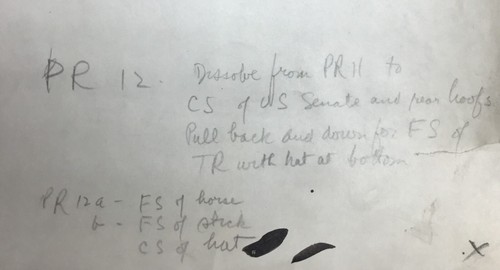 PR 12. Dissolve from PR 11 to
CS of US Senate and rear hoofs
Pull back and down for FS of
TR with hat at bottom
PR 12a - FS of horse
b - FS of stick
CS of hat
X